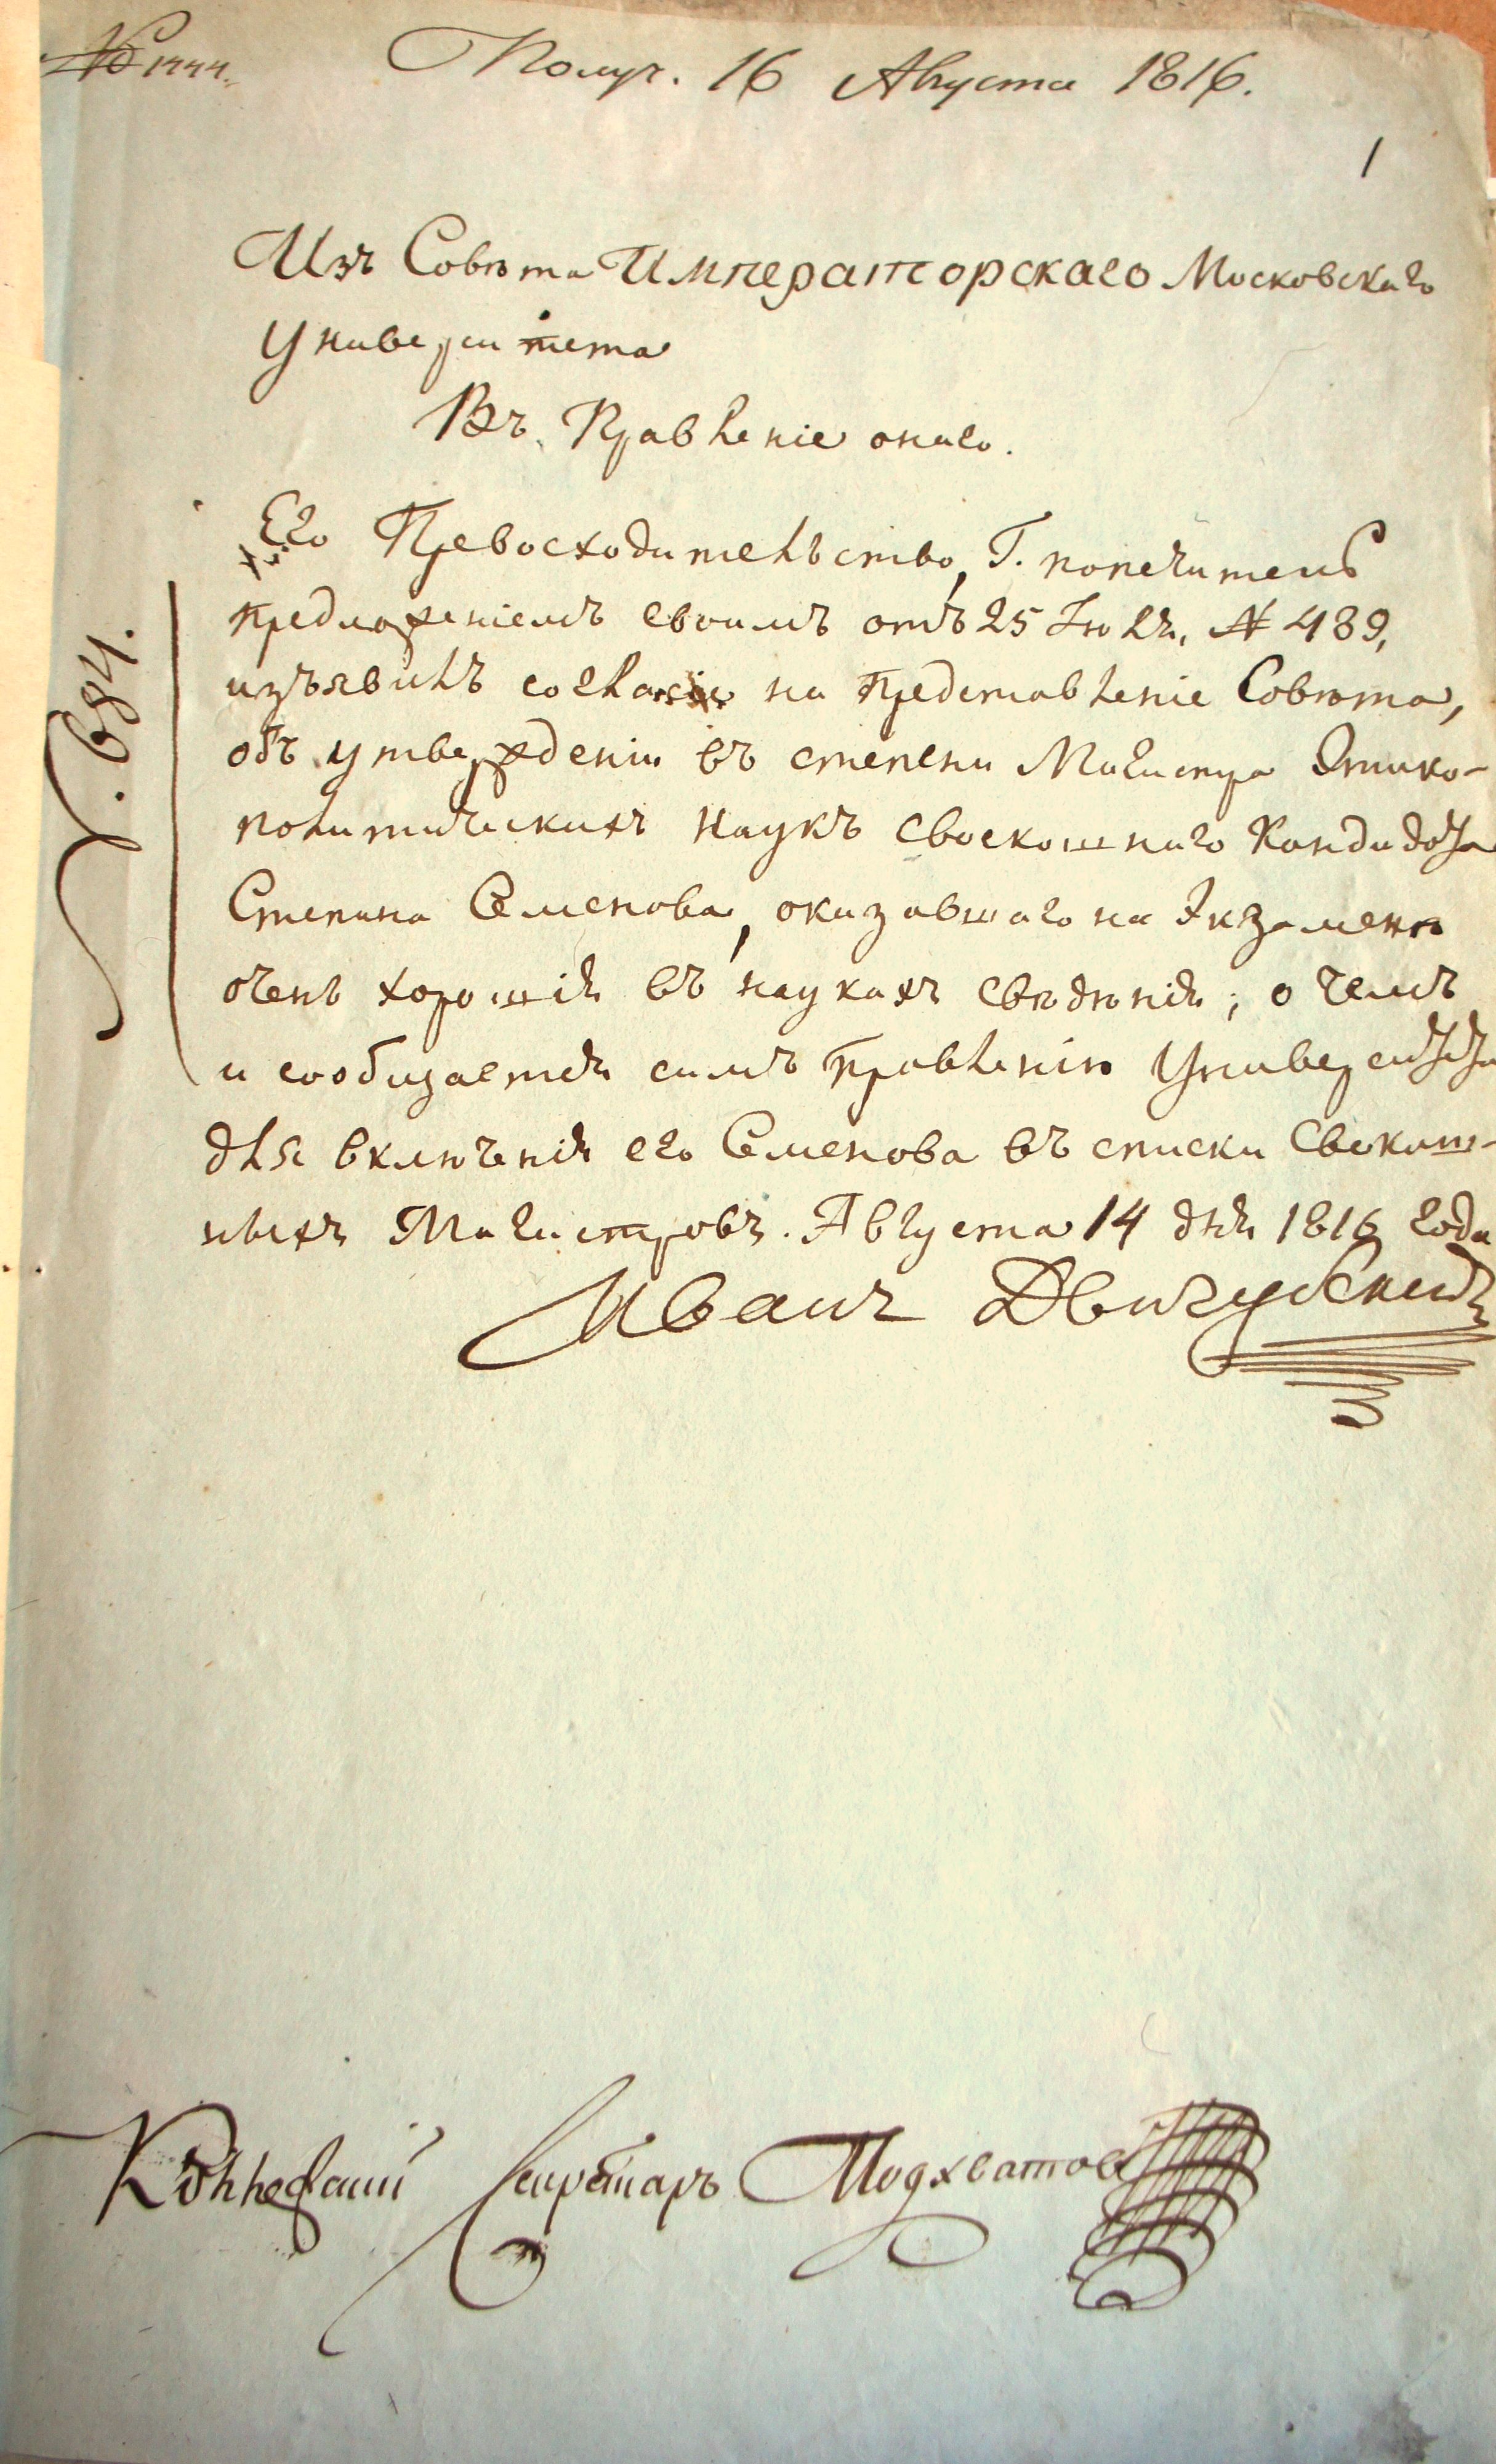 № 1444.
Получ. 16 Августа 1816.
1
Изъ Совѣта Императорскаго Московскаго
Университета
Въ Правленіе онаго.
№. 684.
Его Превосходительство, Г. попечитель
предложеніемъ своимъ отъ 25 Іюля, № 489,
изъявилъ согласіе на представленіе Совѣта,
объ утвержденіи въ степени Магистра Этико-
политическихъ наукъ своекошнаго Кандидата
Степана Семенова, оказавшаго на Экзаменѣ
очень хорошія въ наукахъ свѣдѣнія; о чемъ
и сообщается симъ Правленію Университета
для включенія его Семенова въ списки Своекош-
ныхъ Магистровъ. Августа 14 дня 1816 года
Иванъ Двигубскій
Коллежскій Секретарь Подхватовъ